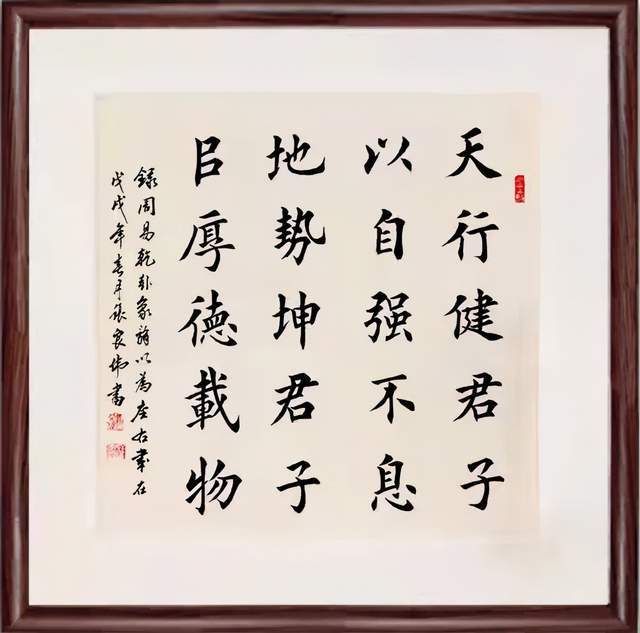 天行健君子
以自强不息
地势坤君子
㠯厚德載物
錄周易乾卦象辭以為座右歲在
戊戌年春月張家書